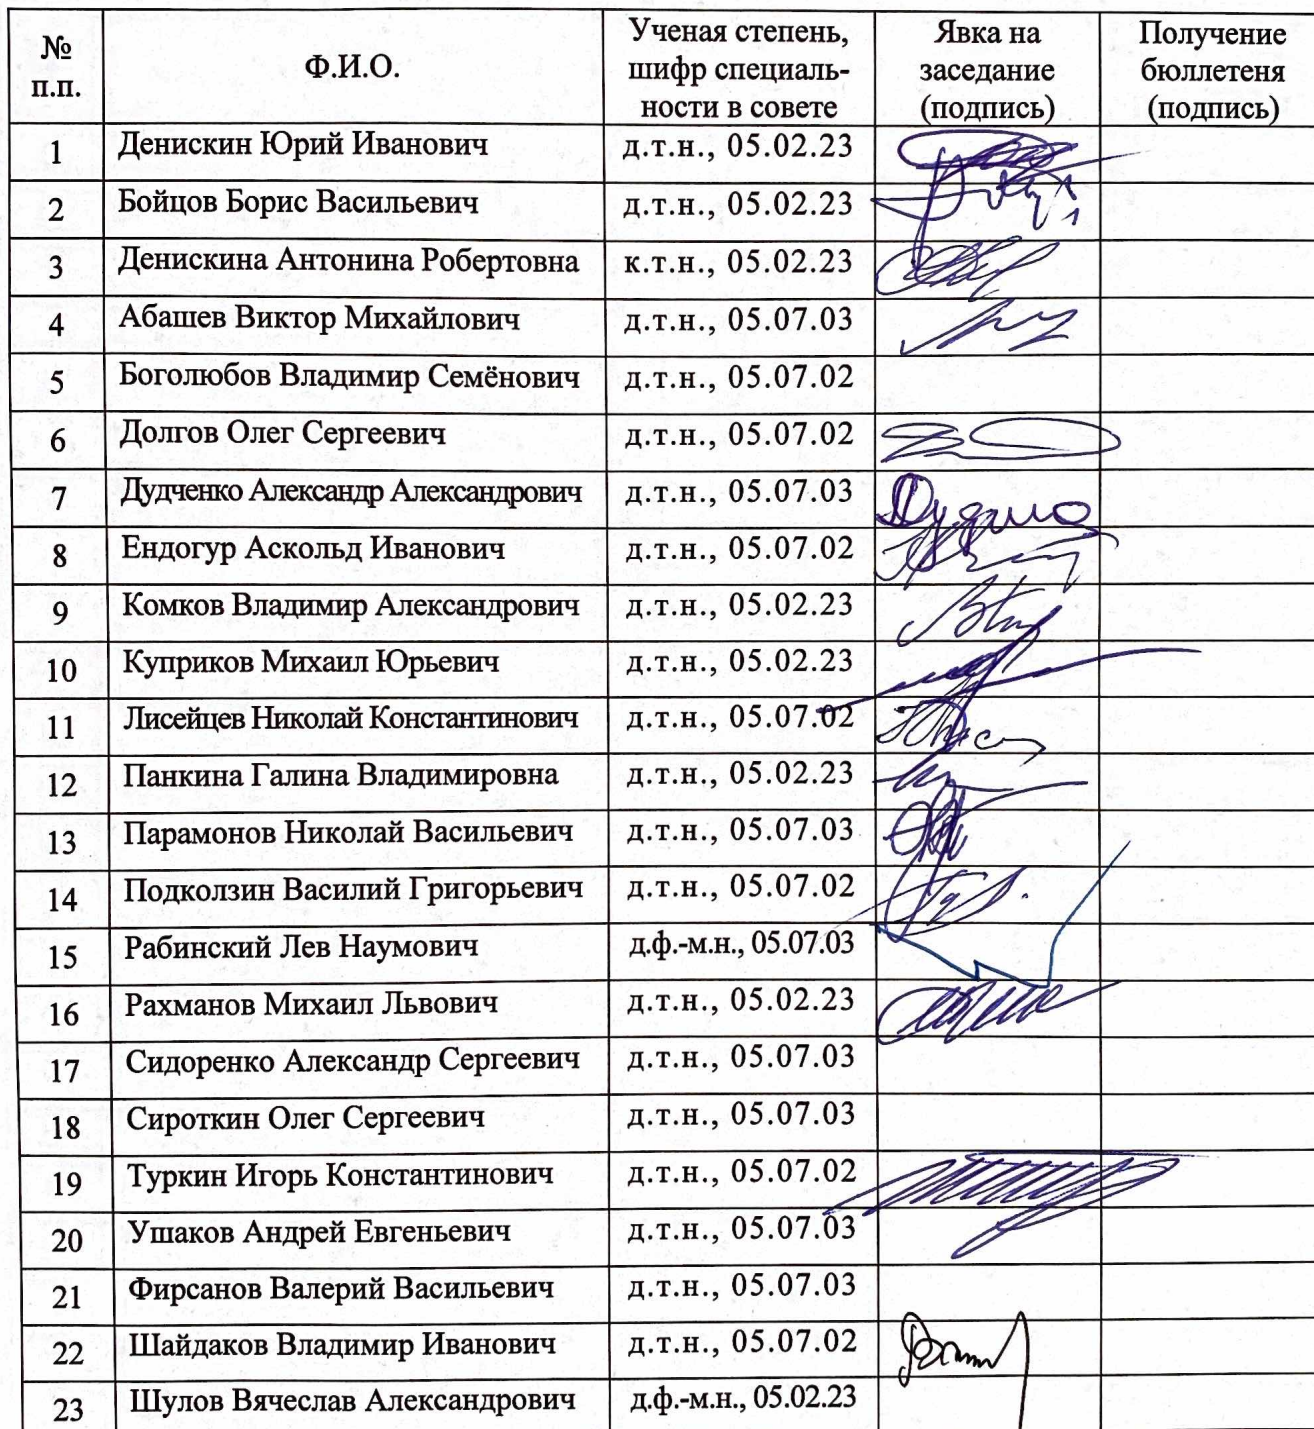 № п.п. Ф.И.О. Ученая степень, шифр специаль- ности в совете Явка на заседание (подпись) Получение бюллетеня (подпись)
1 Денискин Юрий Иванович д.т.н., 05.02.23
2 Бойцов Борис Васильевич д.т.н., 05.02.23
3 Денискина Антонина Робертовна к.т.н., 05.02.23
4 Абашев Виктор Михайлович д.т.н., 05.07.03
5 Боголюбов Владимир Семёнович д.т.н., 05.07.02
6 Долгов Олег Сергеевич д.т.н., 05.07.02
7 Дудченко Александр Александрович д.т.н., 05.07.03
8 Ендогур Аскольд Иванович д.т.н., 05.07.02
9 Комков Владимир Александрович д.т.н., 05.02.23
10 Куприков Михаил Юрьевич д.т.н., 05.02.23
11 Лисейцев Николай Константинович д.т.н., 05.07.02
12 Панкина Галина Владимировна д.т.н., 05.02.23
13 Парамонов Николай Васильевич д.т.н., 05.07.03
14 Подколзин Василий Григорьевич д.т.н., 05.07.02
15 Рабинский Лев Наумович д.ф.-м.н., 05.07.03
16 Рахманов Михаил Львович д.т.н., 05.02.23
17 Сидоренко Александр Сергеевич д.т.н., 05.07.03
18 Сироткин Олег Сергеевич д.т.н., 05.07.03
19 Туркин Игорь Константинович д.т.н., 05.07.02
20 Ушаков Андрей Евгеньевич д.т.н., 05.07.03
21 Фирсанов Валерий Васильевич д.т.н., 05.07.03
22 Шайдаков Владимир Иванович д.т.н., 05.07.02
23 Шулов Вячеслав Александрович д.ф.-м.н., 05.02.23